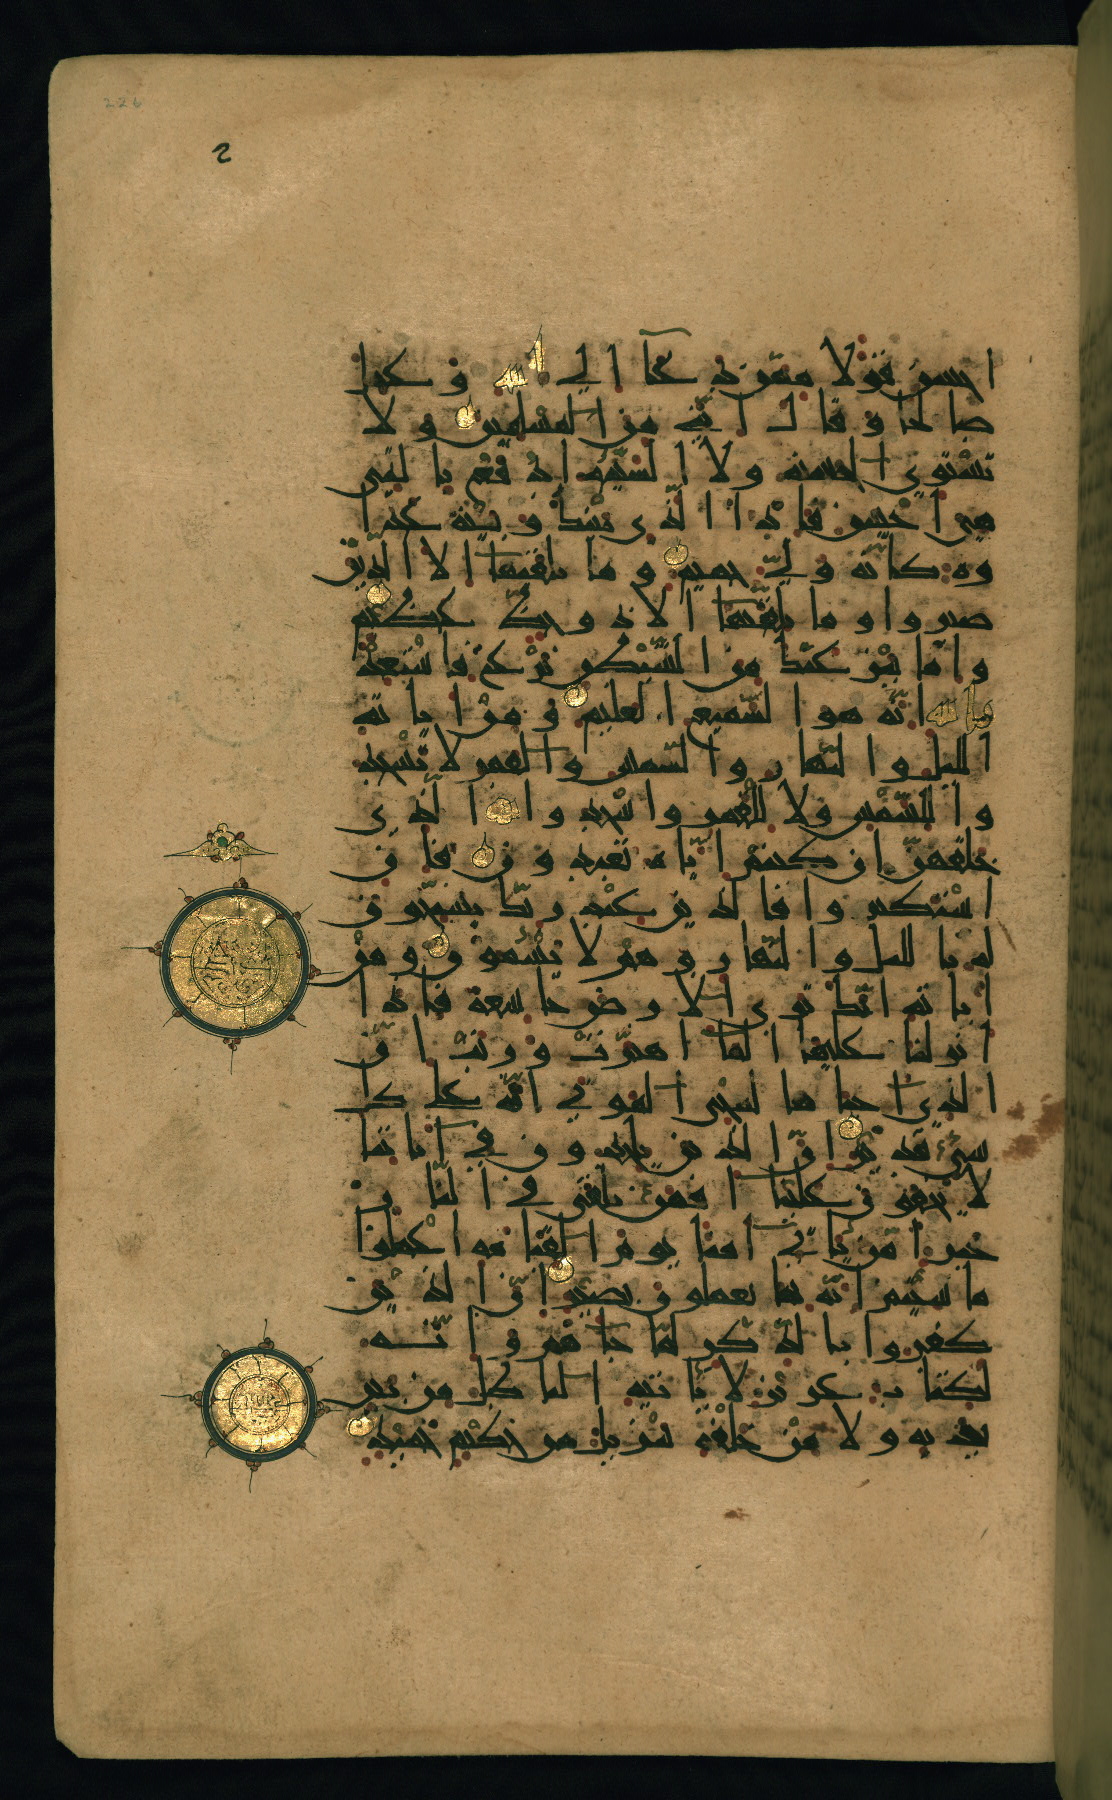 226
احسن قولا ممن دعا الى الله و عمل
صالحا و قال انني من المسلمين و لا
تستوي الحسنة ولا السيئة ادفع بالتي
هي احسن فاذا الذي بينك و بينه عدا
وة كانه ولي حميم و ما يلقيها الا الذين
صبروا و ما يلقيها الا ذو حظ عظيم
و اما ينزغنك من الشيطن نزغ فاستعذ
بالله انه هو السميع العليم و من اياته
الليل و النهار و الشمس و القمر لا تسجد
وا للشمس ولا للقمر واسجدوا لله الذي
خلقهن ان كنتم اياه تعبدون فان
استكبروا فالذين عند ربك يسبحون
له بالليل و النهار و هم لا يسئمون و من
اياته انك ترى الارض خاشعة فاذا
انزلنا عليها الما اهتزت و ربت ان
الذي احياها لمحي الموتى انه على كل
شيء قدير ان الذين يلحدون في اياتنا
لا يخفون علينا افمن يلقى في النار
خير ام من ياتي امنا يوم القيمة اعملوا
ما شئتم انه بما تعملون بصير ان الذين
كفروا بالذكر لما جاهم و انه
لكتاب عزيز لا ياتيه الباطل من بين
يديه و لا من خلفه تنزيل من حكيم حميد